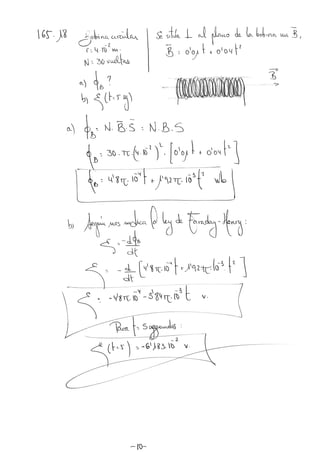 165.18 Bobina circular
r: 4·10⁻² m.
N: 30 vueltas
Se sitúa ⊥ al plano de la bobina un B⃗,
B⃗ = 0'01 t + 0'04 t²
a) ϕ_B ?
b) ε (t=5 s)
B⃗
a) ϕ_B = N·B⃗·S⃗ = N·B·S
ϕ_B = 30·π(4·10⁻²)²·[0'01 t + 0'04 t²]
ϕ_B = 4'8π·10⁻⁴ t + 1'92π·10⁻³ t² wb
b) Según nos indica la ley de Faraday-Henry:
ε = - dϕ_B/dt
ε = - d/dt [4'8π·10⁻⁴ t + 1'92π·10⁻³ t²]
ε = -4'8π·10⁻⁴ - 3'84π·10⁻³ t v.
Para t= 5 segundos:
ε (t=5) = -6'183·10⁻² v.
-10-